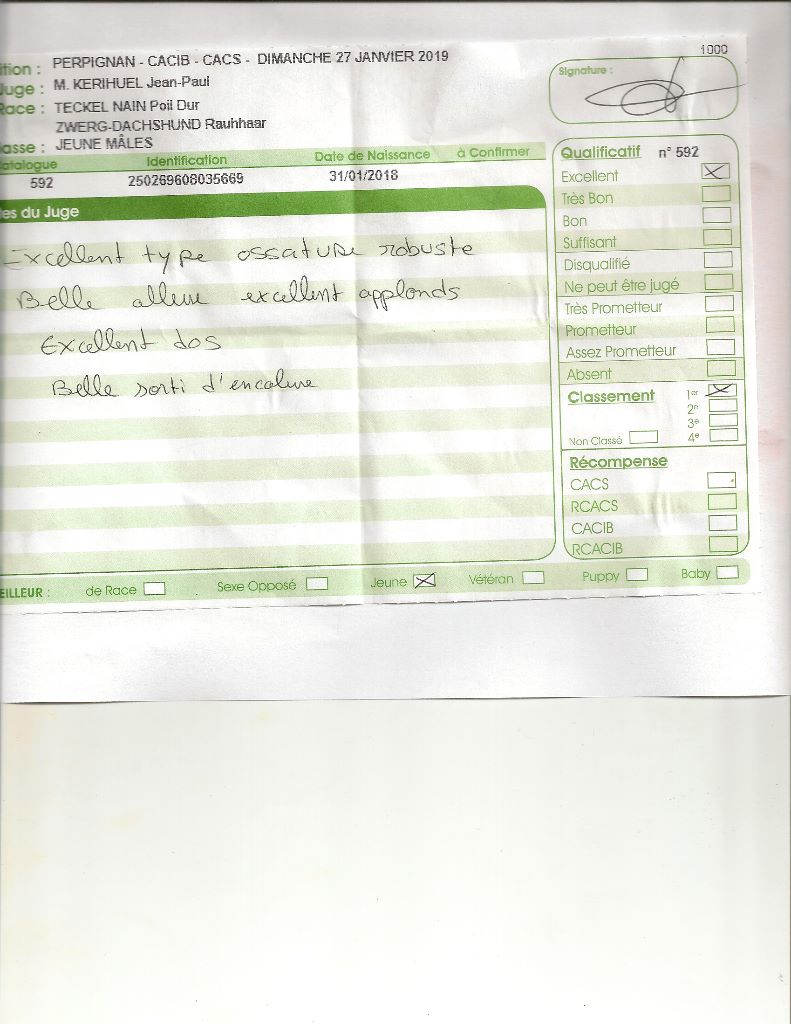 1000
ition : PERPIGNAN - CACIB - CACS - DIMANCHE 27 JANVIER 2019
Juge : M. KERIHUEL Jean-Paul
Race : TECKEL NAIN Poil Dur
ZWERG-DACHSHUND Rauhhaar
asse : JEUNE MÂLES
Signature :
atalogue Identification Date de Naissance à Confirmer
592 250269608035669 31/01/2018
es du Juge
Excellent type ossature robuste
Belle allure excellent applonds
Excellent dos
Belle sorti d'encolure
Qualificatif n° 592
Excellent
Très Bon
Bon
Suffisant
Disqualifié
Ne peut être jugé
Très Prometteur
Prometteur
Assez Prometteur
Absent
Classement 1er
2e
3e
Non Classé 4e
Récompense
CACS
RCACS
CACIB
RCACIB
EILLEUR : de Race Sexe Opposé Jeune Vétéran Puppy Baby